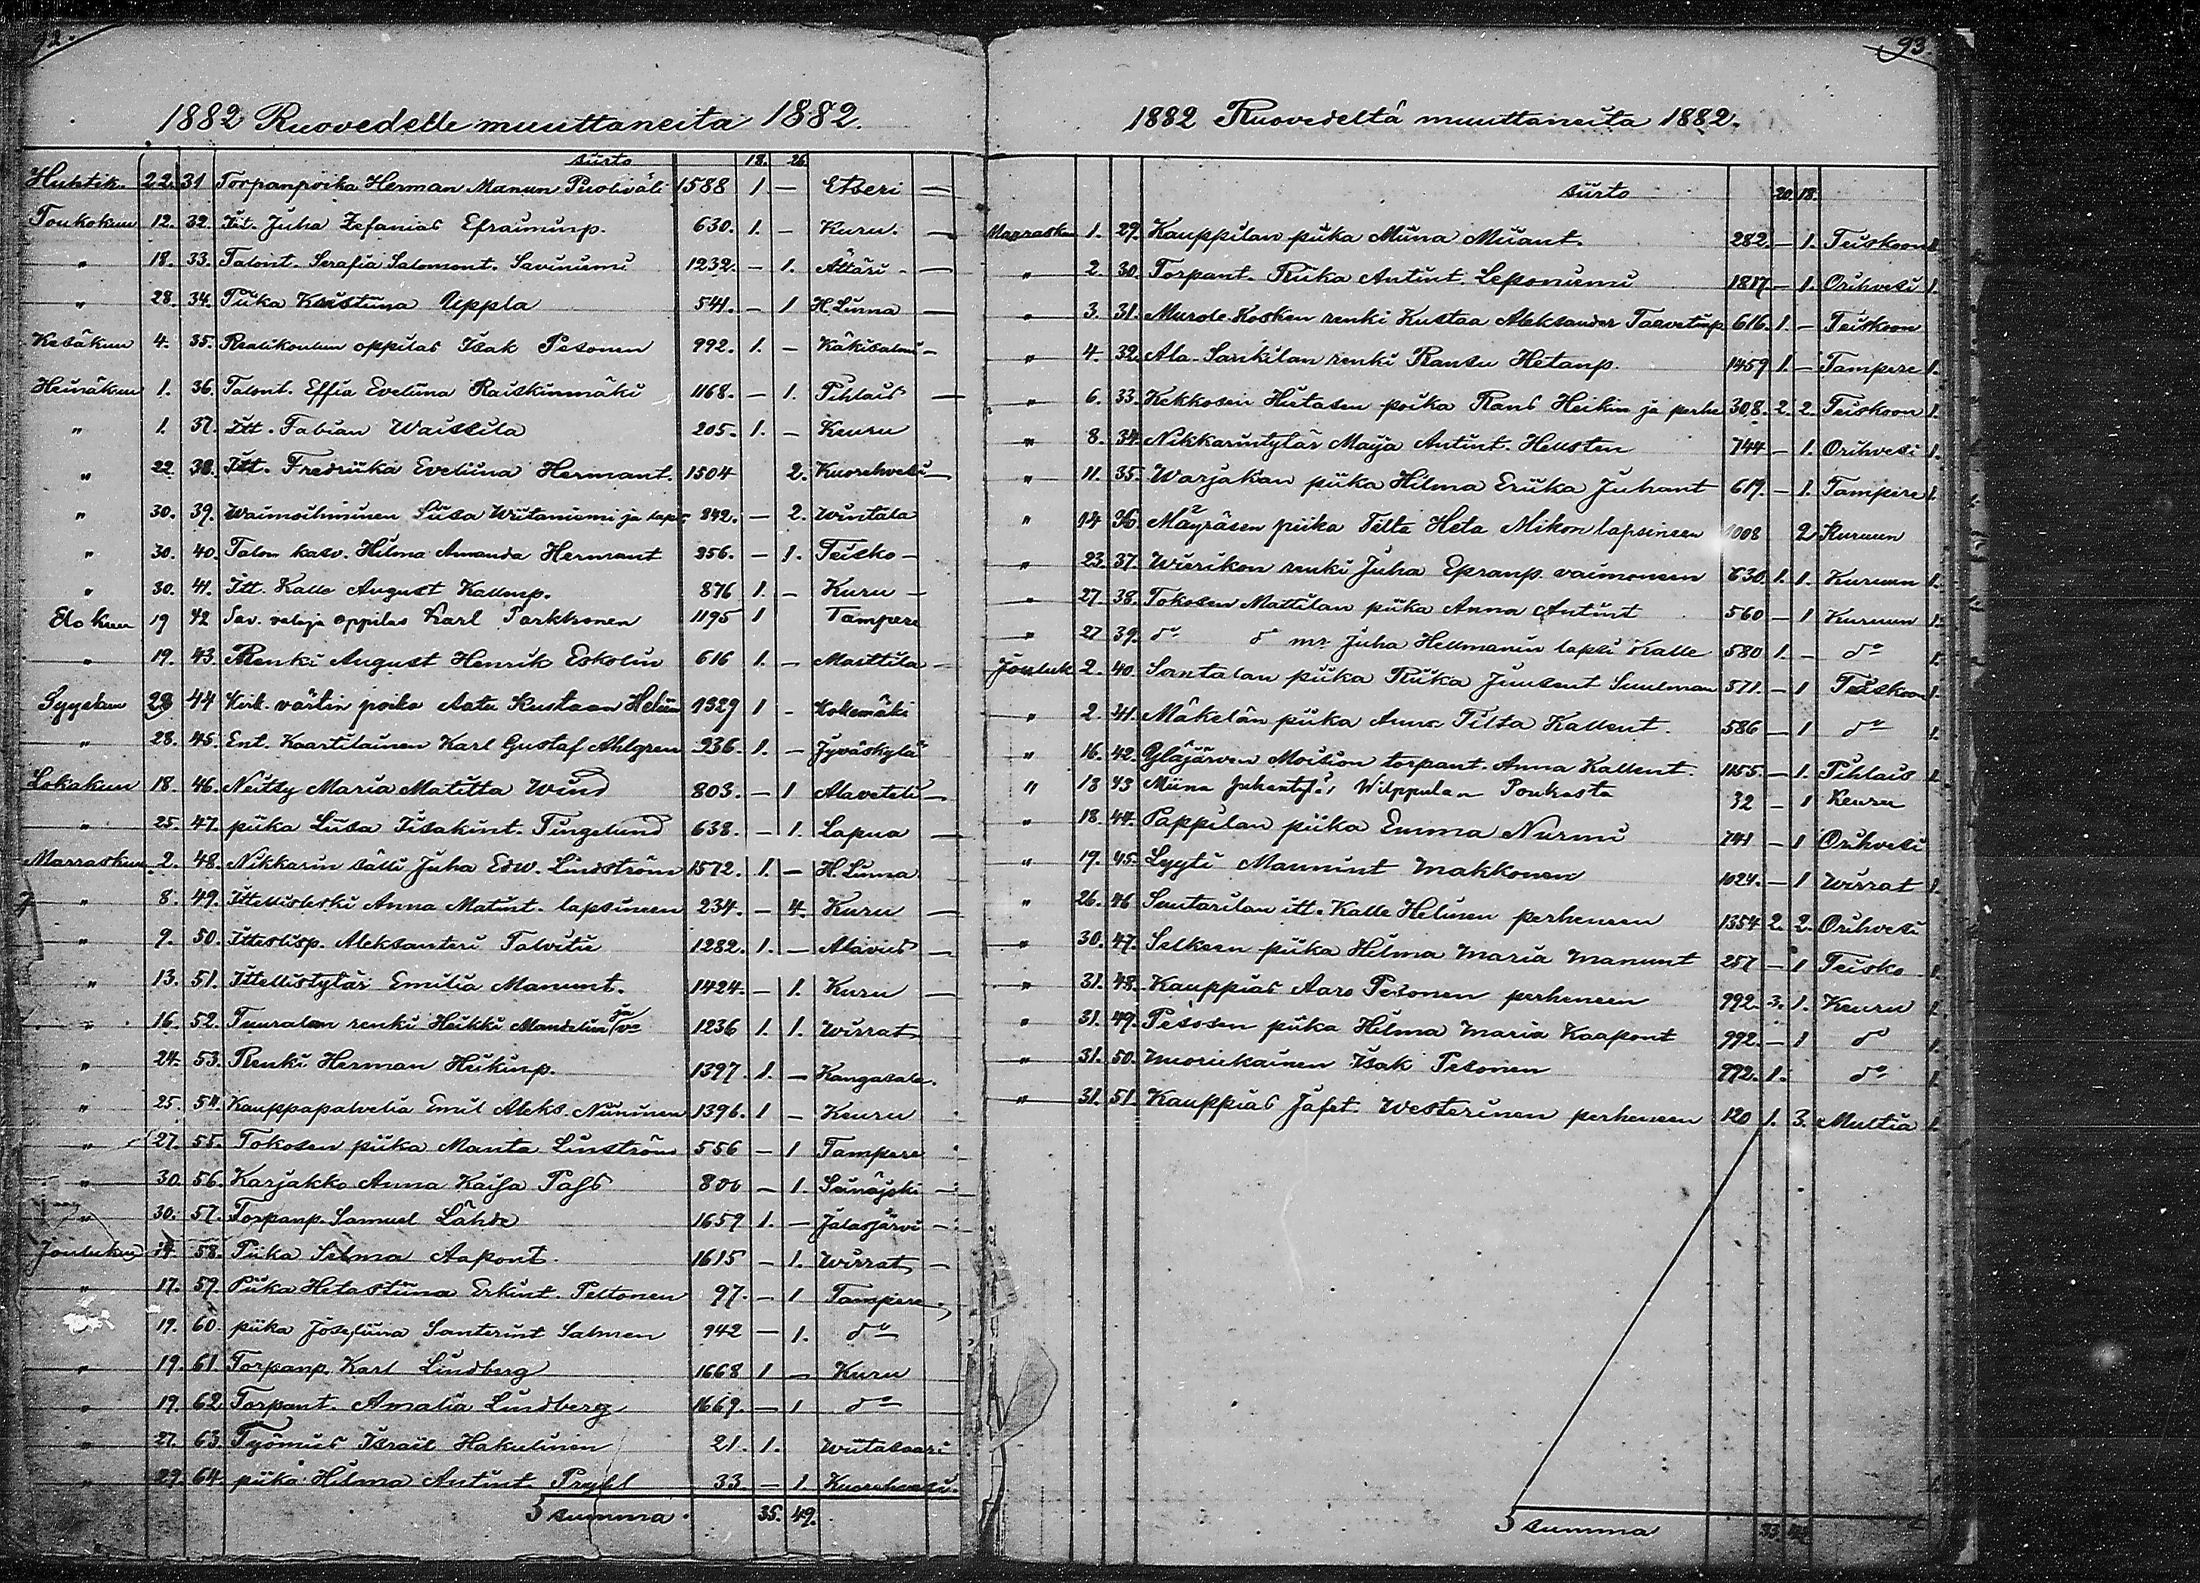 92.
1882 Ruovedelle muuttaneita 1882.
siirto 18. 26.
Huhtik. 22. 31 Torpanpoika Herman Manun Puoliväli 1588 1 — Etseri —
Toukokuu 12. 32. Itt. Juha Zefanias Efraiminp. 630. 1. — Kuru. —
" 18. 33. Talont. Serafia Salomont. Saviniemi 1232. — 1. Ättäri —
" 28. 34. Piika Kristiina Uppla 541. — 1 H.Linna —
Kesäkuu 4. 35. Realikoulun oppilas Isak Pesonen 992. 1. — Käkisalmi —
Heinäkuu 1. 36. Talont. Effia Eveliina Raiskinmäki 1168. — 1. Pihlais —
" 1. 37. Itt. Fabian Waissila 205. 1. — Keuru
" 22 38. Itt. Fredriika Eveliina Hermant. 1504 2. Kuorehvesi —
" 30. 39. Waimoihminen Liisa Wiitaniemi ja laps 842. — 2. Wintala
" 30. 40. Talon kasv. Hilma Amanda Hermant 356. — 1. Teisko —
" 30. 41. Itt. Kalle August Kallenp. 876 1. — Kuru —
Elokuu 19 42 Sav. valaja oppilas Karl Parkkonen 1195 1 Tampere
" 19. 43. Renki August Henrik Eskolin 616 1. — Marttila —
Syyskuu 28 44 Kirk. värtin poika Aatu Kustaan Helin 1329 1 — Kokemäki
" 28. 45. Ent. Kaartilainen Karl Gustaf Ahlgren 936. 1. — Jyväskylä
Lokakuu 18. 46. Neitsy Maria Matitta Wind 803. — 1 Alaveteli —
" 25. 47. piika Liisa Iisakint. Tingelund 638. — 1. Lapua —
Marraskuu 2. 48. Nikkarin sälli Juha Edw. Lindström 1572. 1. — H.Linna
" 8. 49. Ittellisleski Anna Matint. lapsineen 234. — 4. Kuru —
" 9. 50. Ittellisp. Aleksanteri Talvitie 1282. 1. — Alavus —
" 13. 51. Ittellistytär Emilia Manunt. 1424. — 1. Kuru —
" 16. 52. Tuuralan renki Heikki Mandelin ja vo 1236 1. 1. Wirrat
" 24. 53. Renki Herman Heikinp. 1397. 1. — Kangasala.
" 25. 54. Kauppapalvelia Emil Aleks. Niininen 1396. 1 — Keuru
" 27. 55. Tokosen piika Manta Linström 556 — 1 Tampere
" 30. 56. Karjakko Anna Kaisa Pahs 800 — 1. Seinäjoki —
" 30. 57. Torpanp. Samuel Lähde 1659 1. — Jalasjärvi —
Joulukuu 14 58. Piika Selma Aapont. 1615 — 1. Wirrat —
" 17. 59. Piika Hetastiina Erkint. Peltonen 97. — 1 Tampere
19. 60. piika Josefiina Santerint Salmen 942 — 1. do
" 19. 61. Torpanp. Karl Lindberg 1668 1 — Kuru
" 19. 62. Torpant. Amalia Lindberg 1669. — 1 do
" 27. 63. Työmies Israil Hakulinen 21. 1. Wiitasaari
" 29. 64. piika Hilma Antint. 33. — 1. Kuorehvesi.
Summa 35. 49.
93.
1882 Ruovedeltä muuttaneita 1882.
siirto 20. 18.
Marraskuu 1. 29. Kauppilan piika Miina Miiant. 282. — 1. Teiskoon 1.
" 2. 30. Torpant. Riika Antint. Leponiemi 1817 — 1. Orihvesi 1.
" 3. 31. Murole Kosken renki Kustaa Aleksander Taavetinp 616. 1. — Teiskoon
" 4. 32. Ala-Sankilan renki Ransu Hetanp. 1459 1. — Tampere 1.
" 6. 33. Kekkosen Hietasen poika Rans Heikin ja perhe 308. 2. 2. Teiskoon 1.
" 8. 34. Nikkarintytär Maija Antint. Heusten 744 — 1. Orihvesi 1.
" 11. 35. Warjakan piika Hilma Eriika Juhant 617. — 1. Tampere 1.
" 14 36 Mäyräsen piika Telta Heta Mikon lapsineen 1008 2 Kuruun
" 23. 37. Wierikon renki Juha Epranp. vaimoneen 630. 1. 1. Kuruun 1.
" 27. 38. Tokosen Mattilan piika Anna Antint 560 — 1 Kuruun 1.
" 27 39. do do mr Juha Hellmanin lapsi Kalle 580 1. — do 1.
Jouluk 2. 40. Santalan piika Riika Juusent Suulman 571. — 1 Teiskoon 1.
" 2. 41. Mäkelän piika Anna Tilta Kallent. 586 — 1 do 1.
" 16. 42. Yläjärven Moision torpant. Anna Kallent. 1155. — 1. Pihlais 1.
" 18 43 Miina Juhantytär Wilppulan Poukasta 32 — 1 Keuru
" 18. 44. Pappilan piika Emma Nurmi 741 — 1 Orihvesi
" 19. 45. Lyyti Maunint Makkonen 1024. — 1 Wirrat 1.
" 26. 46 Suutarilan itt. Kalle Helinen perheneen 1354 2. 2. Orihvesi
" 30. 47. Selkeen piika Hilma Maria Manunt 257 — 1 Teisko 1.
" 31. 48. Kauppias Aaro Pesonen perheneen 992. 3. 1. Keuru 1.
" 31. 49. Pesosen piika Hilma Maria Kaapont 992. — 1 do 1.
" 31. 50. Nuorukainen Isak Pesonen 992. 1. do 1.
" 31. 51. Kauppias Jafet Westerinen perheneen 120 1. 3. Multia 1.
Summa 33.